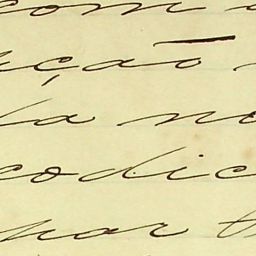 com
ção
la no
codic
por